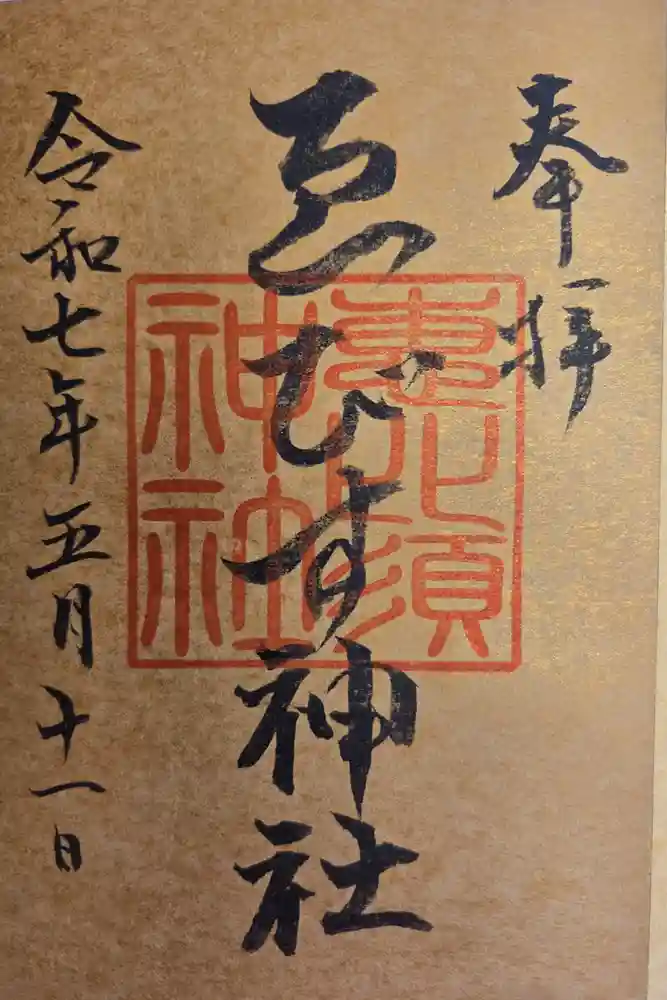 奉拝
ゑびす神社
惠比須
神社
令和七年五月十一日